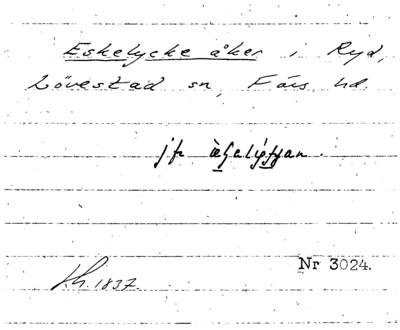 Eskelycke åker i Ryd,
Lövestad sn, Färs hd.
jfr
Nr 3024.
1837